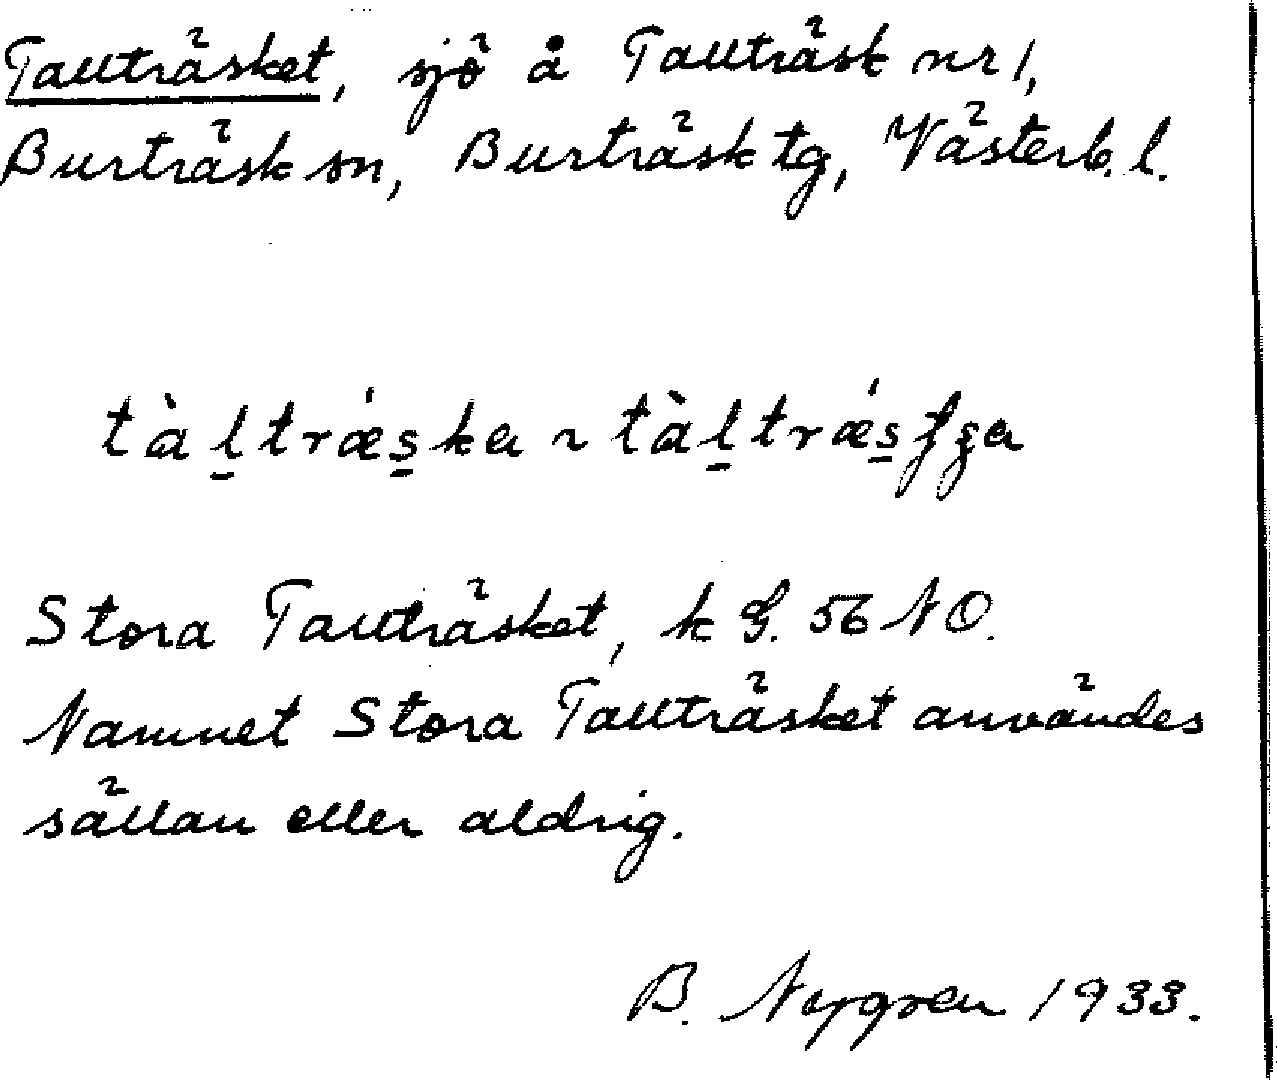 Tallträsket, sjö å Tallträsk nr 1,
Burträsk sn, Burträsk tg, Västerb. l.
tàl̠trǽs̠ka ~ tàl̠trǽs̠ʃʒa
Stora Tallträsket, k G. 56 NO.
Namnet Stora Tallträsket användes
sällan eller aldrig.
B. Nygren 1933.